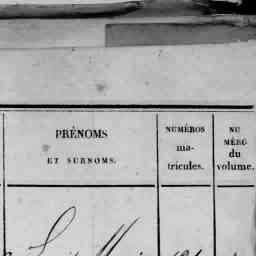 PRÉNOMS
ET SURNOMS.
NUMÉROS
ma-
tricules.
NU
MÉRO
du
volume.